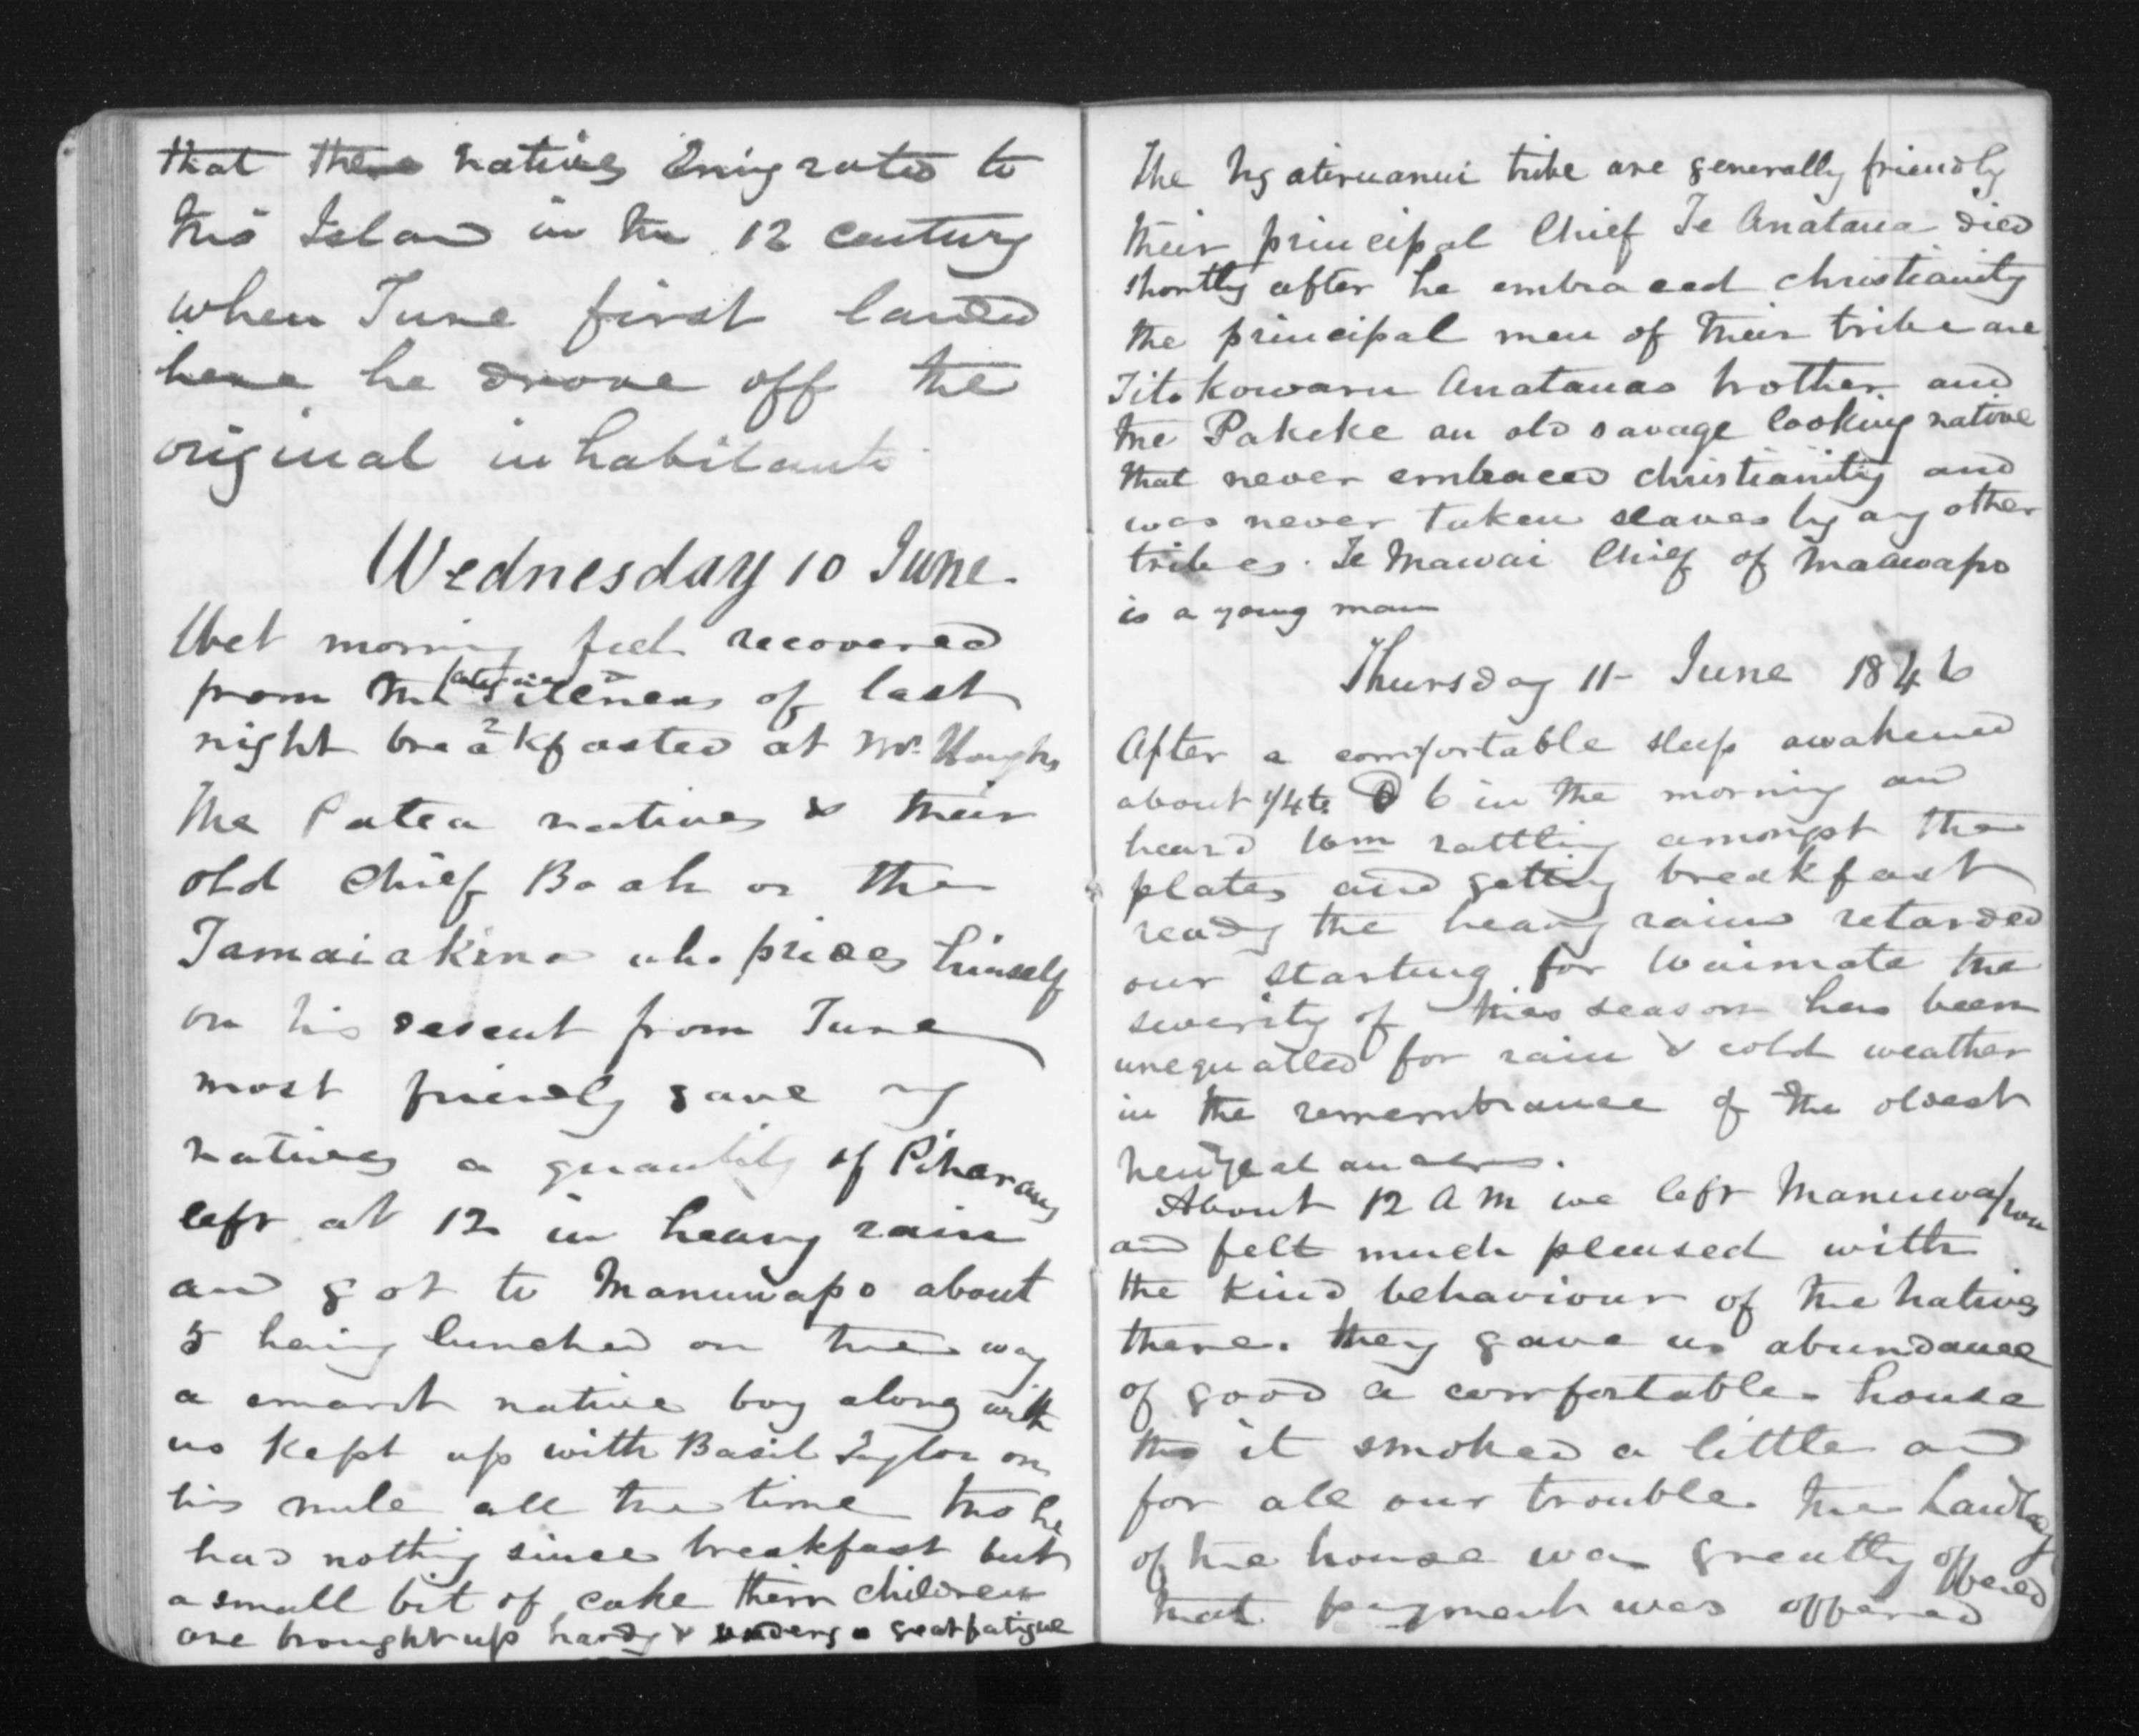 that these natives Emigrated to
this Island in the 12 century
when Ture first landed
here he drove off the
original inhabitants
Wednesday 10 June.
Wet morning feel recovered
from the fatigue of last
night breakfasted at Mr. Houghs
The Patea natives & their
old Chief Baak or the
Tamaiakina who prides himself
on his descent from Ture
most friendly gave my
natives a quantity of Piharau
left at 12 in heavy rain
and got to Manuwapo about
5 having lunched on the way
a smart native boy along with
us kept up with Basil Taylor on
his mule all the time tho he
had nothing since breakfast but
a small bit of cake their children
are brought up hardy & undergo great fatigue
The Ngatiruanui tribe are generally friendly
their principal Chief Te Anataua died
shortly after he embraced christianity
the principal men of their tribe are
Titokowaru Anatauas brother and
the Pakeke an old savage looking native
that never embraced christianity and
was never taken slaves by any other
tribes. Te Mawai Chief of Maawapo
is a young man
Thursday 11- June 1846
After a comfortable sleep awakened
about 1/4 to 6 in the morning and
heard Wm rattling amongst the
plates and getting breakfast
ready the heavy rains retarded
our starting for Waimate the
severity of this season has been
unequalled for rain & cold weather
in the remembrance of the oldest
New Zealanders.
About 12 A M we left Manuwapou
and felt much pleased with
the kind behaviour of the natives
there. they gave us abundance
of good a comfortable house
tho it smoked a little and
for all our trouble. the Landlady
of the house was greatly offened
that payment was offered